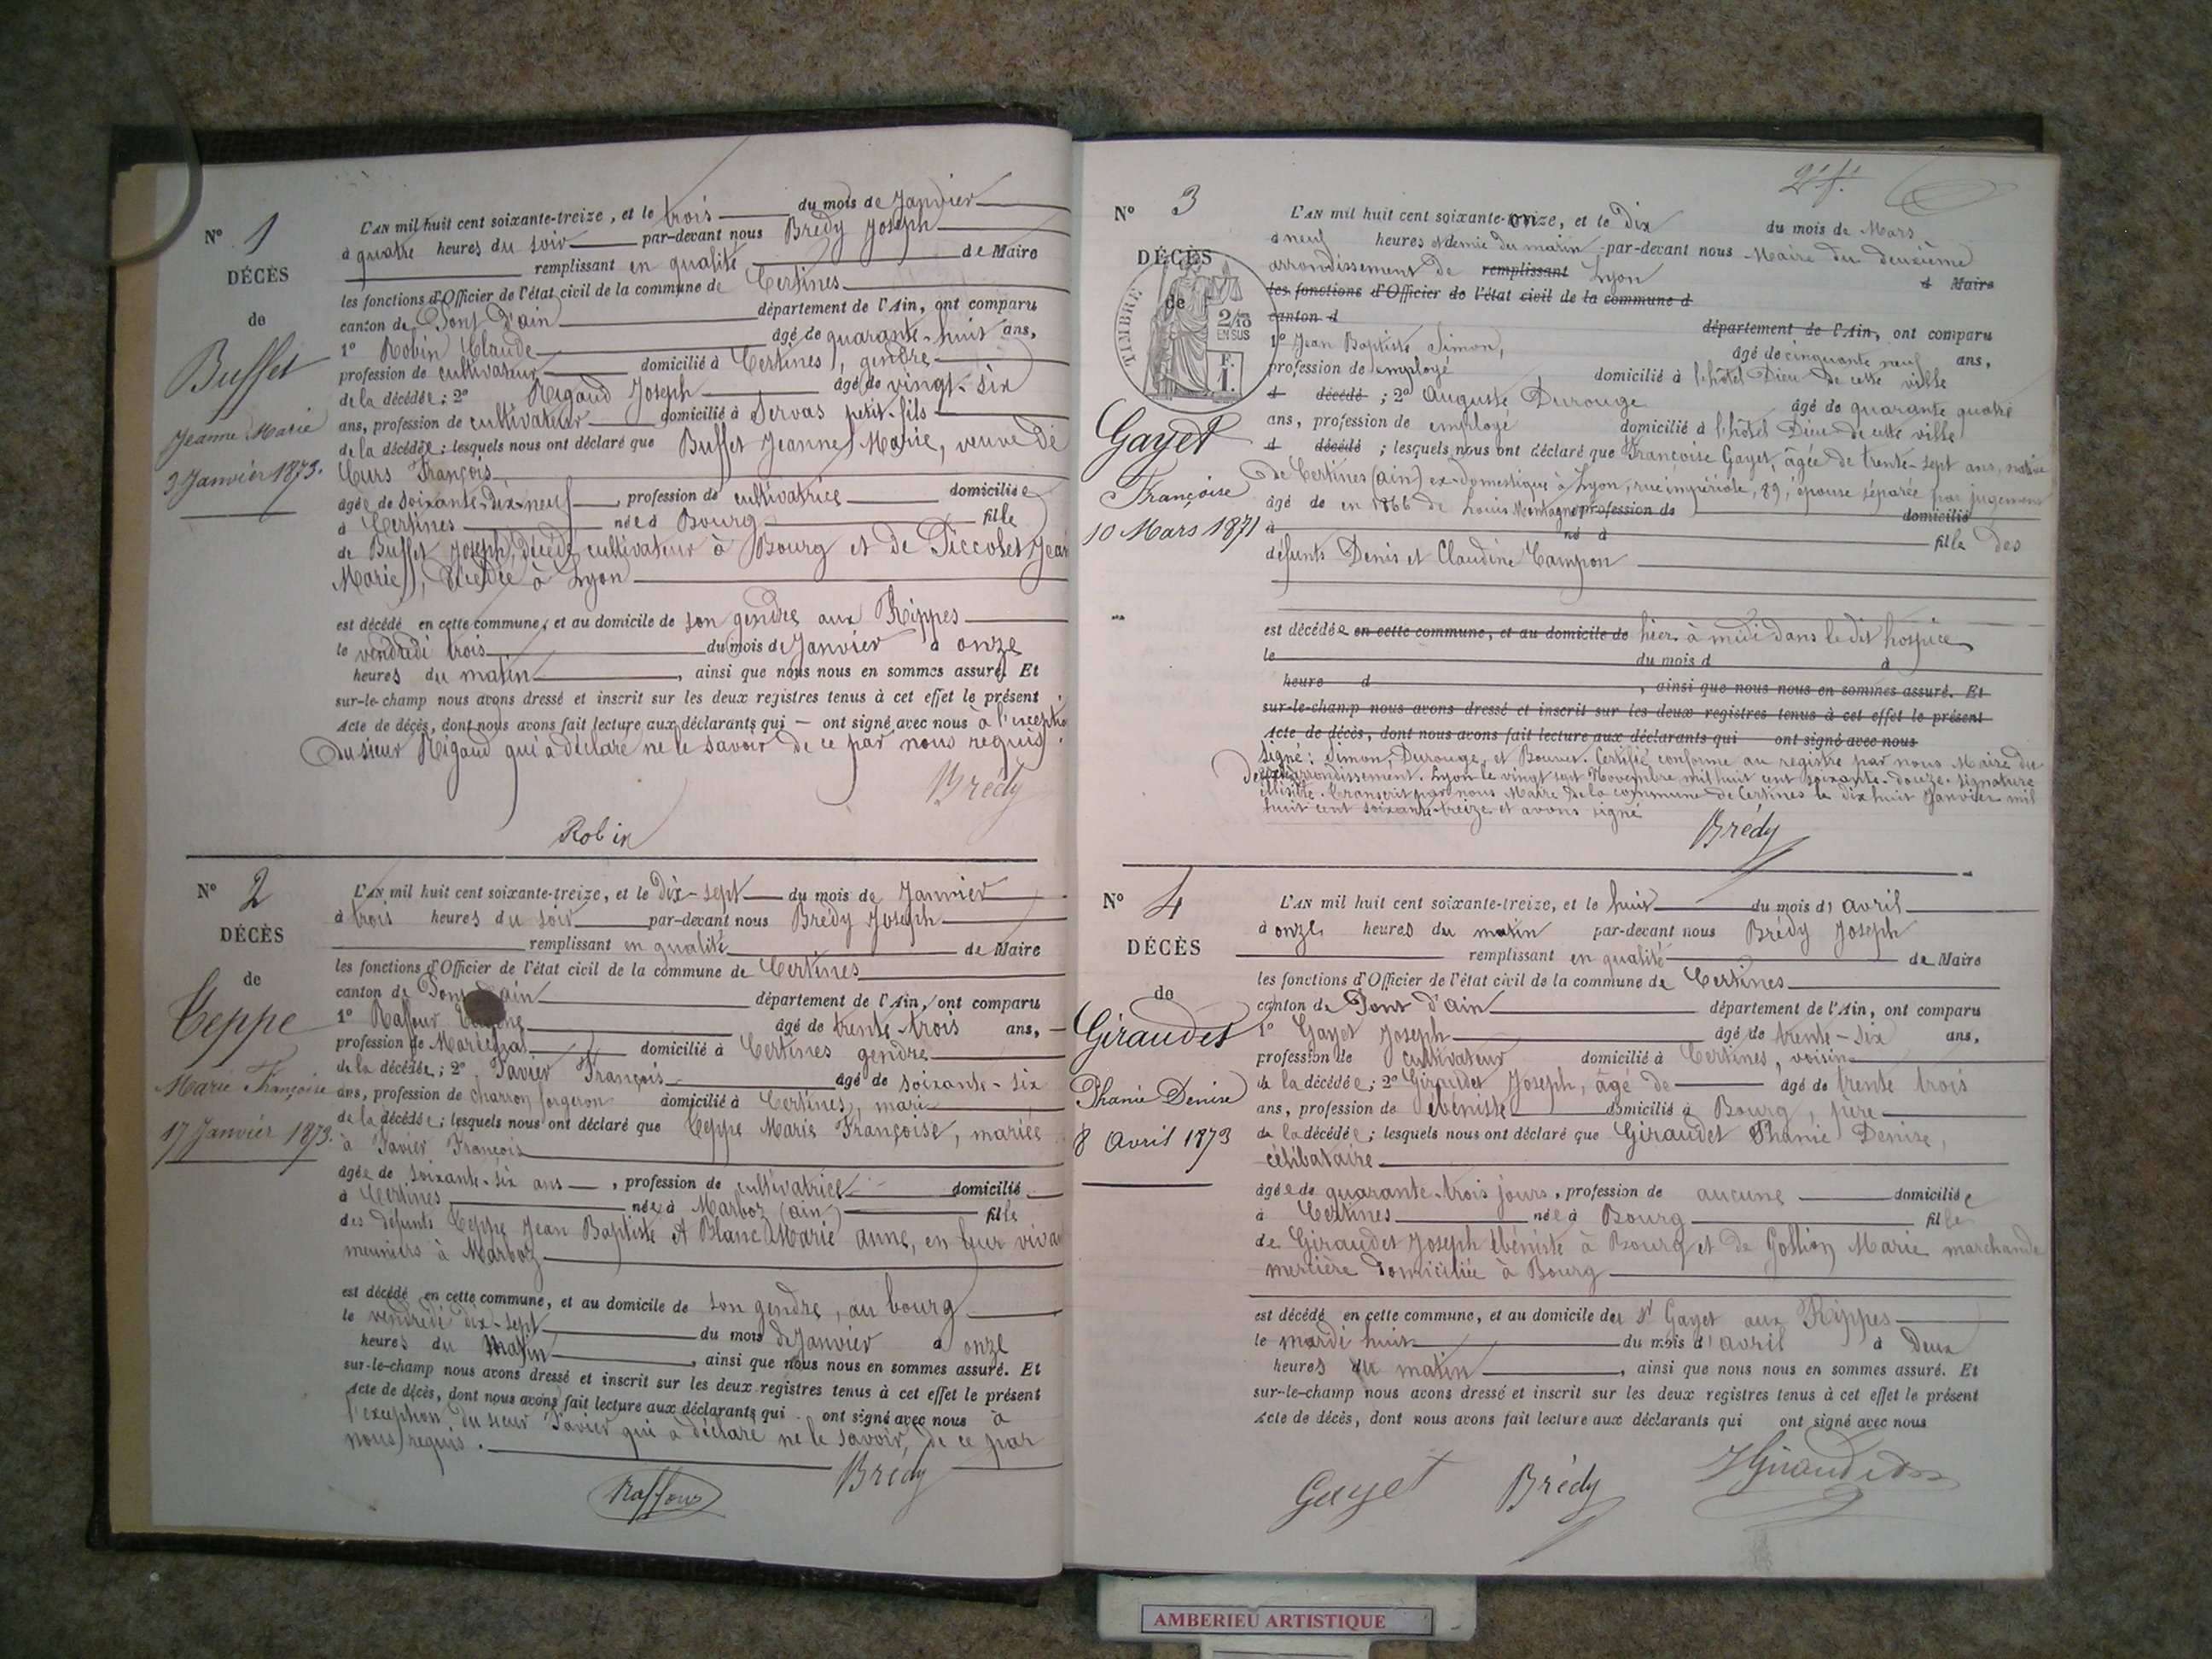 N° 1
DÉCÈS
de
Buffet
Jeanne Marie
3 Janvier 1873.
L'AN mil huit cent soixante-treize, et le trois du mois de Janvier
à quatre heures du soir par-devant nous Brédy Joseph
remplissant en qualité de Maire
les fonctions d'Officier de l'état civil de la commune de Certines
canton de Pont d'ain département de l'Ain, ont comparu
1° Robin Claude âgé de quarante-huit ans,
profession de cultivateur domicilié à Certines, gendre
de la décédée; 2° Rigaud Joseph âgé de vingt-six
ans, profession de cultivateur domicilié à Servas petit-fils
de la décédée; lesquels nous ont déclaré que Buffet Jeanne Marie, veuve de
Curs François
âgée de soixante-dix-neuf, profession de cultivatrice domiciliée
à Certines née à Bourg fille
de Buffet Joseph, décédé cultivateur à Bourg et de Piccolet Jean
Marie, décédée à Lyon
est décédé en cette commune, et au domicile de son gendre aux Rippes
le vendredi trois du mois de Janvier à onze
heures du matin, ainsi que nous nous en sommes assuré. Et
sur-le-champ nous avons dressé et inscrit sur les deux registres tenus à cet effet le présent
Acte de décès, dont nous avons fait lecture aux déclarants qui — ont signé avec nous à l'exception
du sieur Rigaud qui a déclaré ne le savoir de ce par nous requis.
Brédy
Robin
N° 2
DÉCÈS
de
Teppe
Marie Françoise
17 Janvier 1873.
L'AN mil huit cent soixante-treize, et le dix-sept du mois de Janvier
à trois heures du soir par-devant nous Brédy Joseph
remplissant en qualité de Maire
les fonctions d'Officier de l'état civil de la commune de Certines
canton de Pont d'ain département de l'Ain, ont comparu
1° Raffour âgé de trente-trois ans,
profession de Maréchal domicilié à Certines gendre
de la décédée; 2° Tavier François âgé de soixante-six
ans, profession de charron forgeron domicilié à Certines, mari
de la décédée; lesquels nous ont déclaré que Teppe Marie Françoise, mariée
à Tavier François
âgée de soixante-six ans, profession de cultivatrice domicilié
à Certines née à Marboz (ain) fille
des défunts Teppe Jean Baptiste et Blanc Marie anne, en leur vivant
meuniers à Marboz
est décédé en cette commune, et au domicile de son gendre, au bourg
le vendredi dix-sept du mois de Janvier à onze
heures du matin, ainsi que nous nous en sommes assuré. Et
sur-le-champ nous avons dressé et inscrit sur les deux registres tenus à cet effet le présent
Acte de décès, dont nous avons fait lecture aux déclarants qui ont signé avec nous à
l'exception du sieur Tavier qui a déclaré ne le savoir, de ce par
nous requis.
Brédy
Raffour
2e f.
N° 3
DÉCÈS
de
TIMBRE
2/10
EN SUS
F.
1.
Gayet
Françoise
10 Mars 1871
L'AN mil huit cent soixante-onze, et le Dix du mois de Mars
à neuf heures et demie du matin par-devant nous Maire du deuxième
arrondissement de remplissant Lyon d Maire
les fonctions d'Officier de l'état civil de la commune d
canton d département de l'Ain, ont comparu
1° Jean Baptiste Simon, âgé de cinquante neuf ans,
profession de employé domicilié à l'hôtel Dieu de cette ville
d décédé; 2° Auguste Durouge âgé de quarante quatre
ans, profession de employé domicilié à l'hôtel Dieu de cette ville
d décédé; lesquels nous ont déclaré que Françoise Gayet, âgée de trente-sept ans, native
de Certines (ain) ex-domestique à Lyon, rue impériale, 89, épouse séparée par jugement
âgé de en 1866 de Louis Montagne profession de domicilié
à né à fille des
défunts Denis et Claudine Campon
est décédée en cette commune, et au domicile de hier à midi dans le dit hospice
le du mois d à
heure d, ainsi que nous nous en sommes assuré. Et
sur-le-champ nous avons dressé et inscrit sur les deux registres tenus à cet effet le présent
Acte de décès, dont nous avons fait lecture aux déclarants qui ont signé avec nous
Signé: Simon, Durouge, et Bouvet. Certifié conforme au registre par nous Maire du
deuxième arrondissement. Lyon le vingt sept Novembre mil huit cent soixante-douze. signature
illisible. Transcrit par nous Maire de la commune de Certines le dix huit Janvier mil
huit cent soixante-treize et avons signé
Brédy
N° 4
DÉCÈS
de
Giraudet
Phanie Denise
8 avril 1873
L'AN mil huit cent soixante-treize, et le huit du mois d'avril
à onze heures du matin par-devant nous Brédy Joseph
remplissant en qualité de Maire
les fonctions d'Officier de l'état civil de la commune de Certines
canton de Pont d'ain département de l'Ain, ont comparu
1° Gayet Joseph âgé de trente-six ans,
profession de cultivateur domicilié à Certines, voisin
de la décédée; 2° Giraudet Joseph, âgé de âgé de trente trois
ans, profession de ébéniste domicilié à Bourg, père
de la décédée; lesquels nous ont déclaré que Giraudet Phanie Denise,
célibataire
âgée de quarante-trois jours, profession de aucune domiciliée
à Certines née à Bourg fille
de Giraudet Joseph ébéniste à Bourg et de Gottion Marie marchande
mercière domiciliée à Bourg
est décédé en cette commune, et au domicile de Sr Gayet aux Rippes
le mardi huit du mois d'avril à deux
heures du matin, ainsi que nous nous en sommes assuré. Et
sur-le-champ nous avons dressé et inscrit sur les deux registres tenus à cet effet le présent
Acte de décès, dont nous avons fait lecture aux déclarants qui ont signé avec nous
Gayet Brédy JGiraudet
AMBERIEU ARTISTIQUE